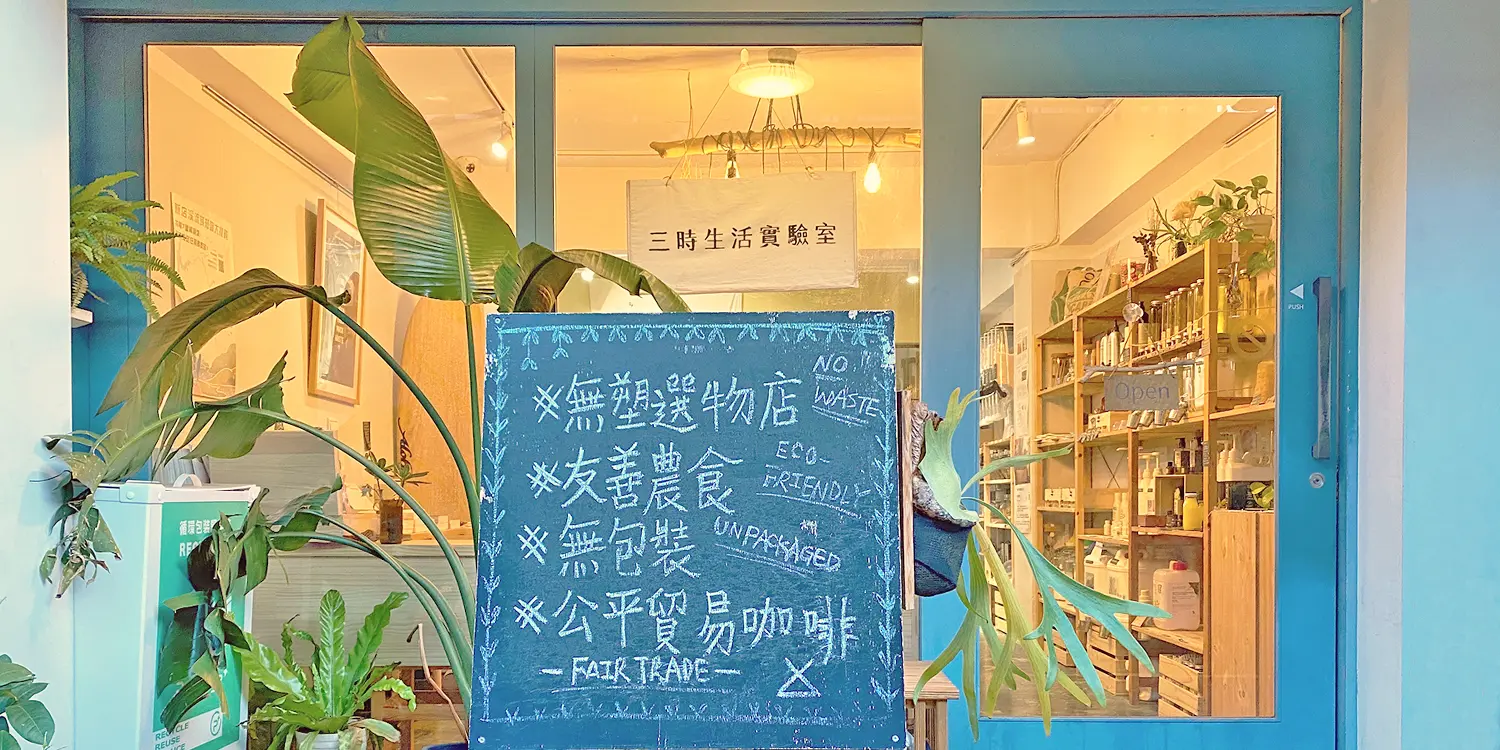 三時生活實驗室
※無塑選物店
NO
WASTE
※友善農食
ECO-
FRIENDLY
※無包裝
UNPACKAGED
※公平貿易咖啡
—FAIR TRADE—
Open
PUSH
循環包裝
RECYCLE
REUSE